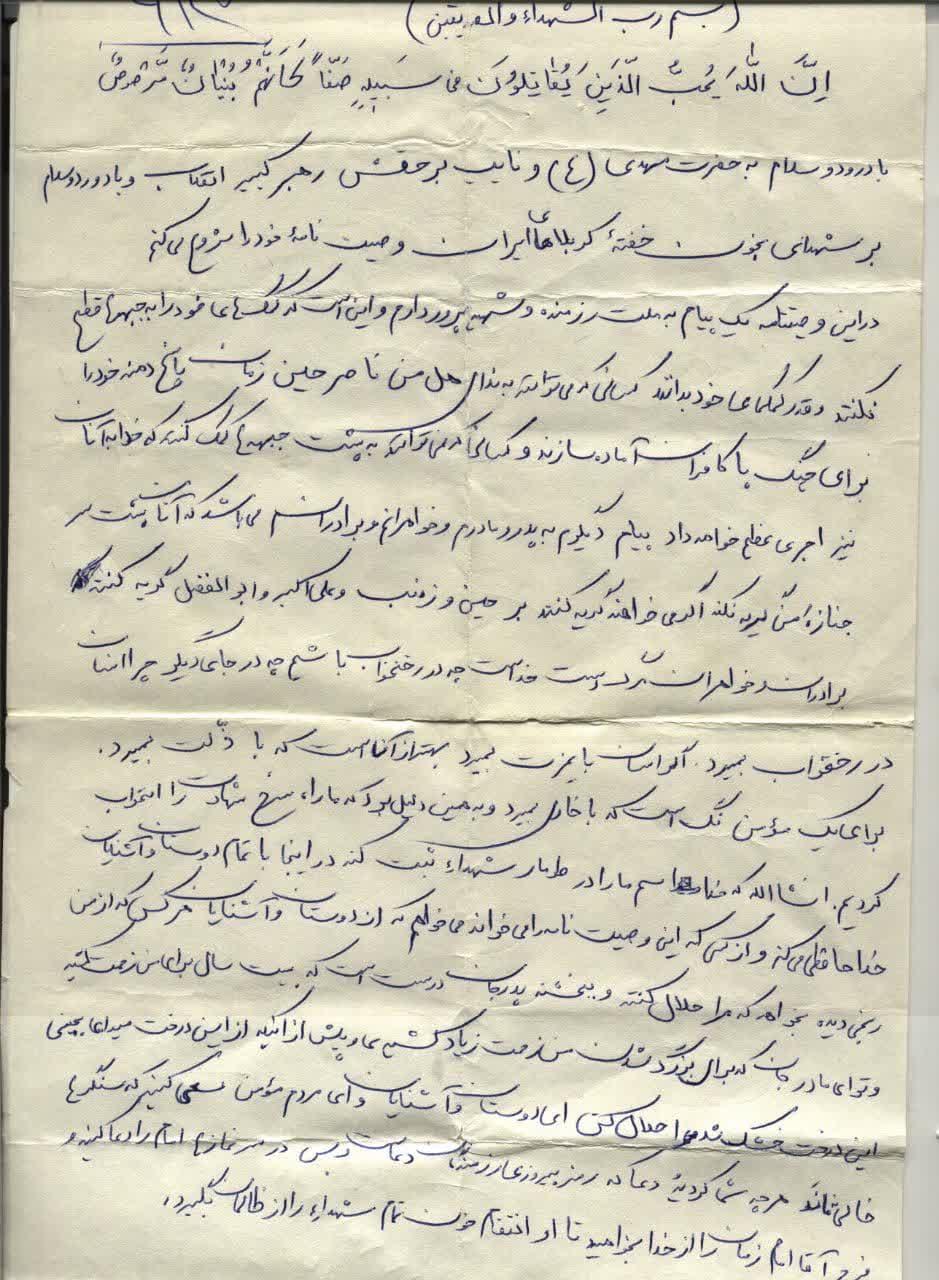 (بسم رب الشهداء والصدیقین)
اِنَّ اللّهَ یُحِبُّ الَّذینَ یُقاتِلُونَ فی سَبیلِهِ صَفّاً کَاَنَّهُم بُنْیانٌ مَّرْصُوصٌ
با درود و سلام به حضرت مهدی (ع) و نایب برحقش رهبر کبیر انقلاب و با درود و سلام
بر شهدای بخون خفتهٔ کربلاهای ایران وصیت نامهٔ خود را شروع می کنم
در این وصیتنامه یک پیام به ملت رزمنده و شهید پرور دارم و این است که کمک های خود را به جبهه ها قطع
نکنند و قدر کمکهای خود بدانند کسانی که می توانند به ندای هل من ناصر حسین زمان پاسخ دهند خود را
برای جنگ با کافران آماده سازند و کسانی که نمی توانند به پشت جبهه ها کمک کنند که خدا به آنان
نیز اجری عظیم خواهد داد پیام دیگرم به پدر و مادرم و خواهرانم و برادرانم می باشد که آنان پشت سر
جنازه من گریه نکنند اگر می خواهند گریه کنند بر حسین و زینب و علی اکبر و ابوالفضل گریه کنند
برادران و خواهران مرگ دست خداست چه در رختخواب باشیم چه در جای دیگر چرا انسان
در رختخواب بمیرد. اگر انسان با عزت بمیرد بهتر از آن است که با ذلّت بمیرد.
برای یک مؤمن ننگ است که با بمیرد و به همین دلیل بود که ما راه سرخ شهادت را انتخاب
کردیم. انشاالله که خدا اسم ما را در طومار شهداء ثبت کند در اینجا با تمام دوستان و آشنایان
خداحافظی می کنم و از کسی که این وصیت نامه را می خواند می خواهم که از دوستان و آشنایان هر کس که از من
رنجی دیده بخواهد که مرا حلال کنند و ببخشند پدرجان درست است که بیست سال برای من زحمت کشیدید
و توای مادر جان که برای بزرگ شدن من زحمت زیاد کشیدی و پیش از اینکه از این درخت میوه ای بچینی
این درخت خشک شد مرا حلال کنی ای دوستان و آشنایان و ای مردم مؤمن سعی کنید که سنگرها
خالی نماند هر چه شما کردید دعا که رمز پیروزی رزمندگان دعاست و بس در سر نمازها امام را دعا کنید و
فرج آقا امام زمان را از خدا بخواهید تا او انتقام خون تمام شهداء را از ظالمان بگیرد.